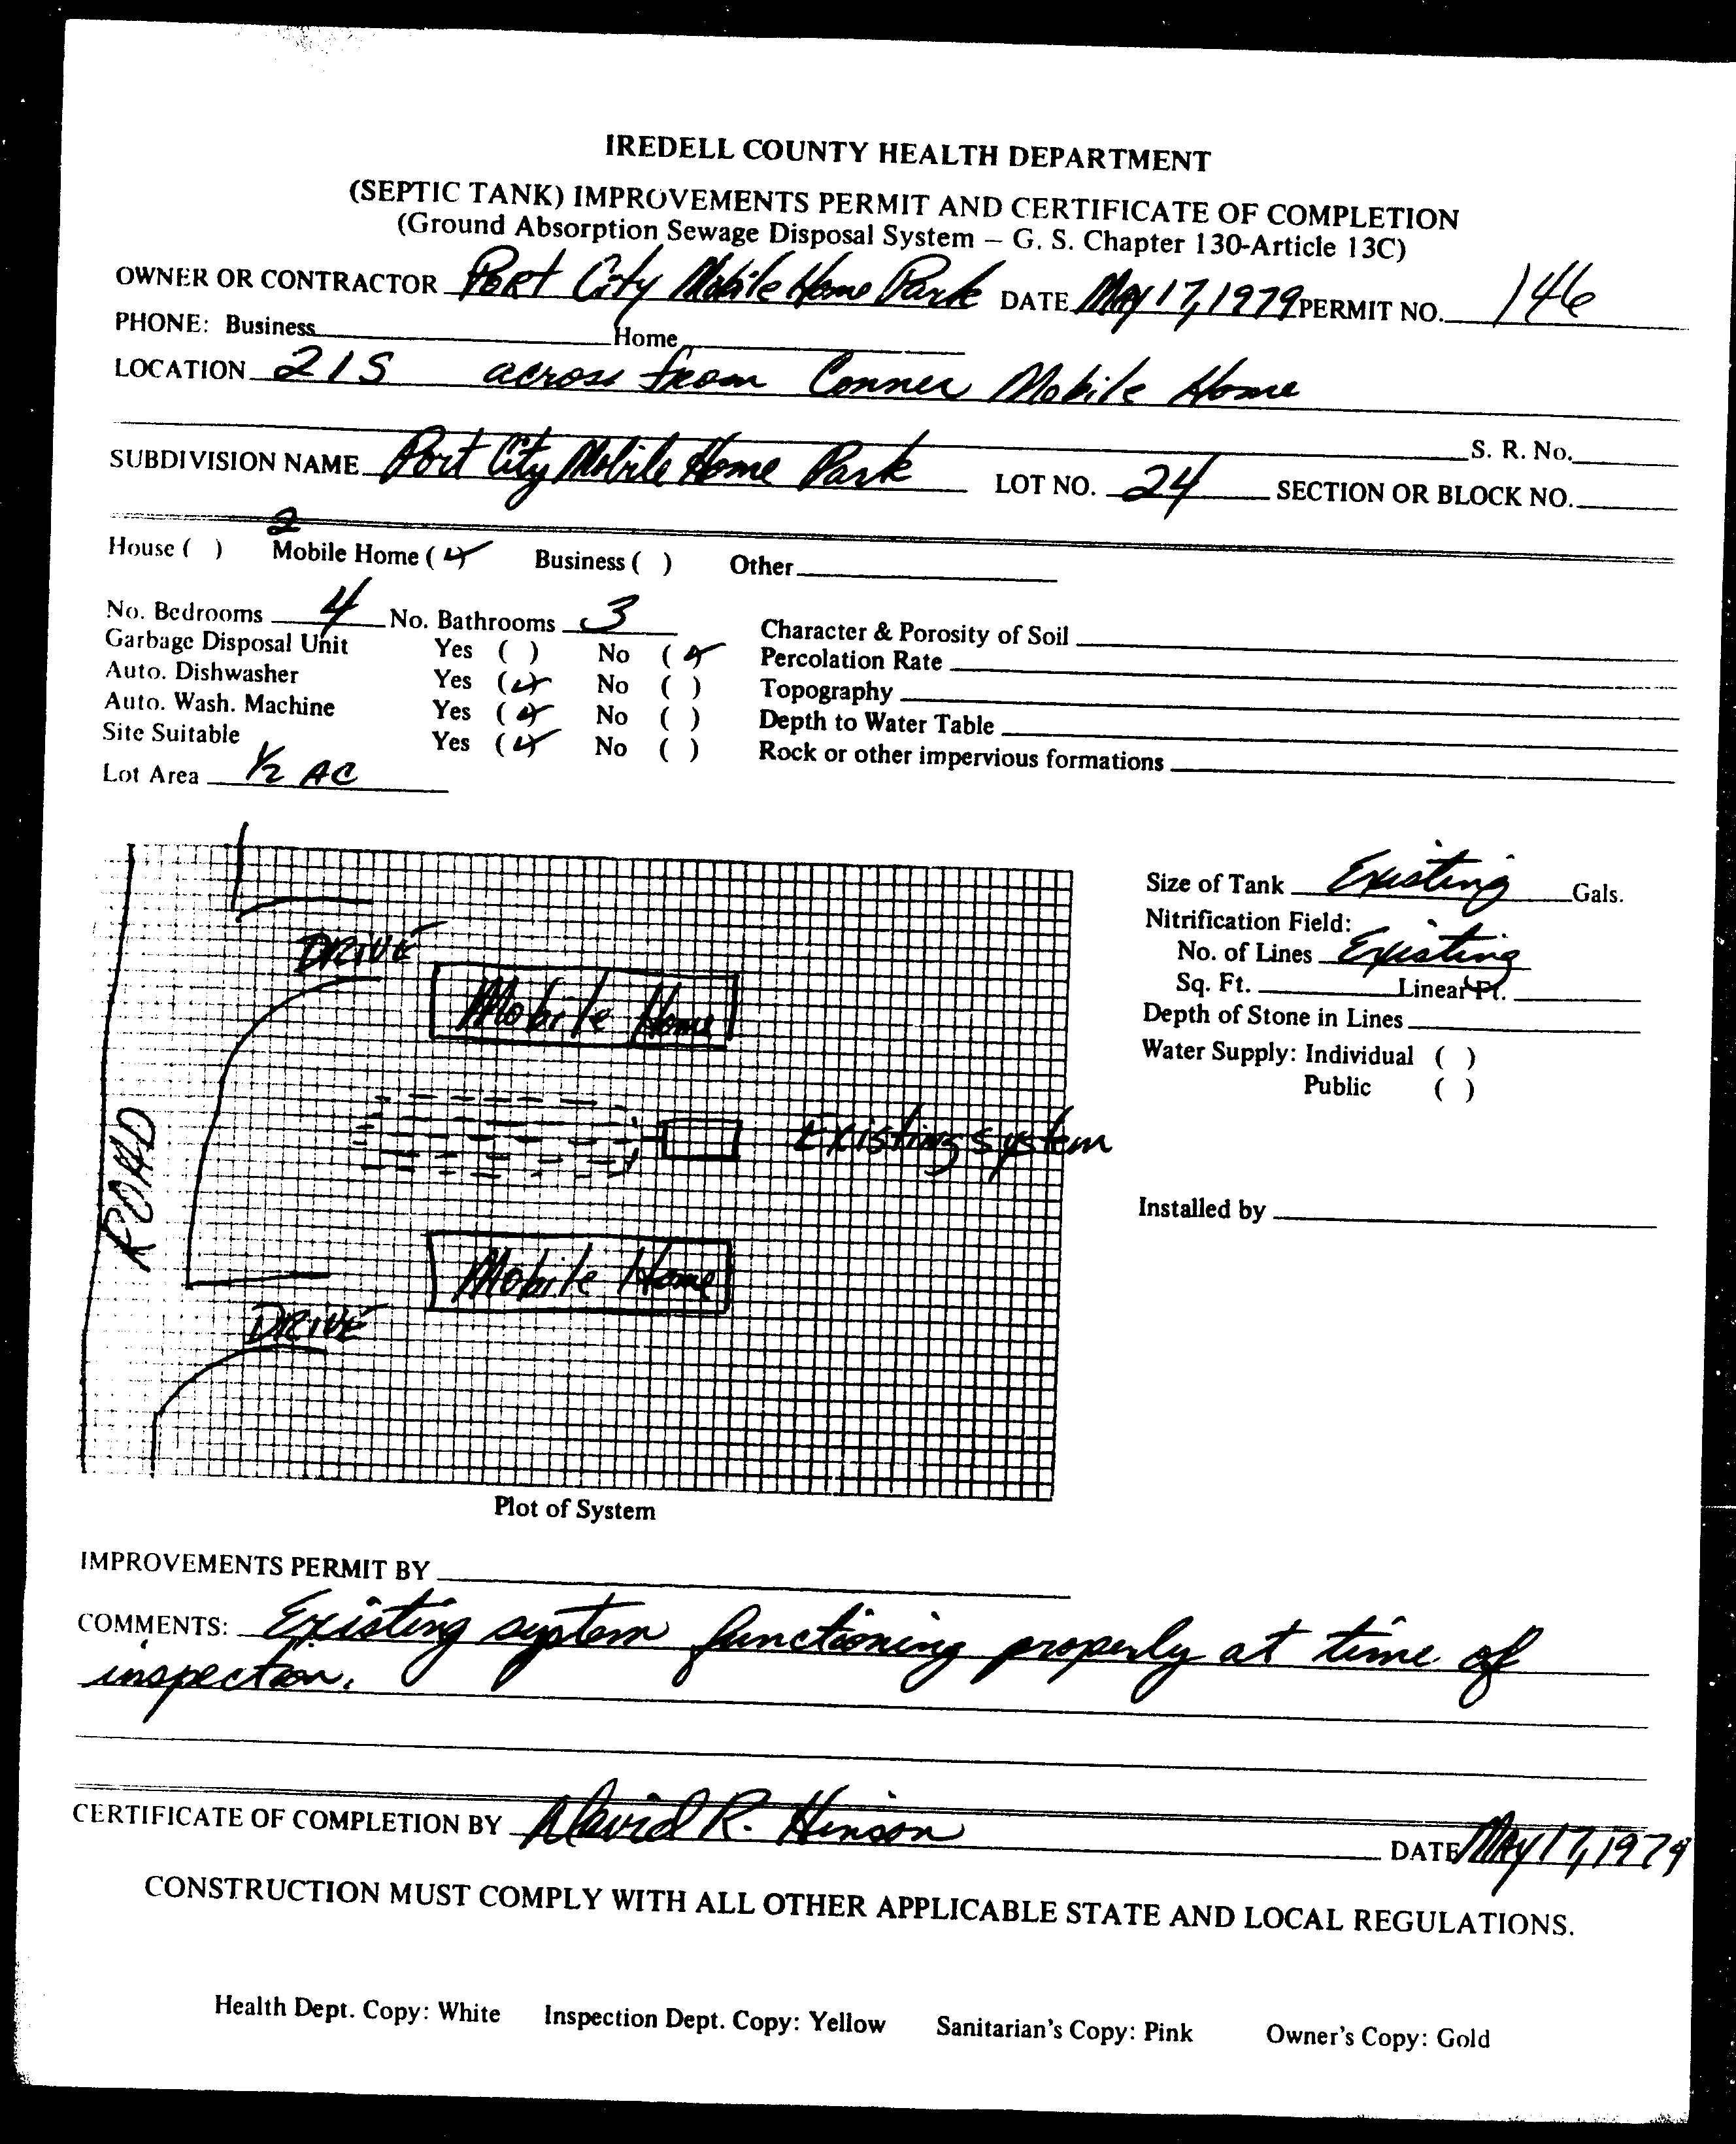 IREDELL COUNTY HEALTH DEPARTMENT
(SEPTIC TANK) IMPROVEMENTS PERMIT AND CERTIFICATE OF COMPLETION
(Ground Absorption Sewage Disposal System – G. S. Chapter 130-Article 13C)
OWNER OR CONTRACTOR Port City Mobile Home Park DATE May 17, 1979 PERMIT NO. 146
PHONE: Business Home
LOCATION 21S across from Conner Mobile Home
S. R. No.
SUBDIVISION NAME Port City Mobile Home Park LOT NO. 24 SECTION OR BLOCK NO.
2
House ( ) Mobile Home (✓) Business ( ) Other
No. Bedrooms 4 No. Bathrooms 3 Character & Porosity of Soil
Garbage Disposal Unit Yes ( ) No (✓) Percolation Rate
Auto. Dishwasher Yes (✓) No ( ) Topography
Auto. Wash. Machine Yes (✓) No ( ) Depth to Water Table
Site Suitable Yes (✓) No ( ) Rock or other impervious formations
Lot Area 1/2 AC
Size of Tank Existing Gals.
Nitrification Field:
No. of Lines Existing
Sq. Ft. Linear Ft.
Depth of Stone in Lines
Water Supply: Individual ( )
Public ( )
Installed by
DRIVE
Mobile Home
ROAD
Existing system
Mobile Home
DRIVE
Plot of System
IMPROVEMENTS PERMIT BY
COMMENTS: Existing system functioning properly at time of
inspection.
CERTIFICATE OF COMPLETION BY David R. Hinson DATE May 17, 1979
CONSTRUCTION MUST COMPLY WITH ALL OTHER APPLICABLE STATE AND LOCAL REGULATIONS.
Health Dept. Copy: White Inspection Dept. Copy: Yellow Sanitarian's Copy: Pink Owner's Copy: Gold